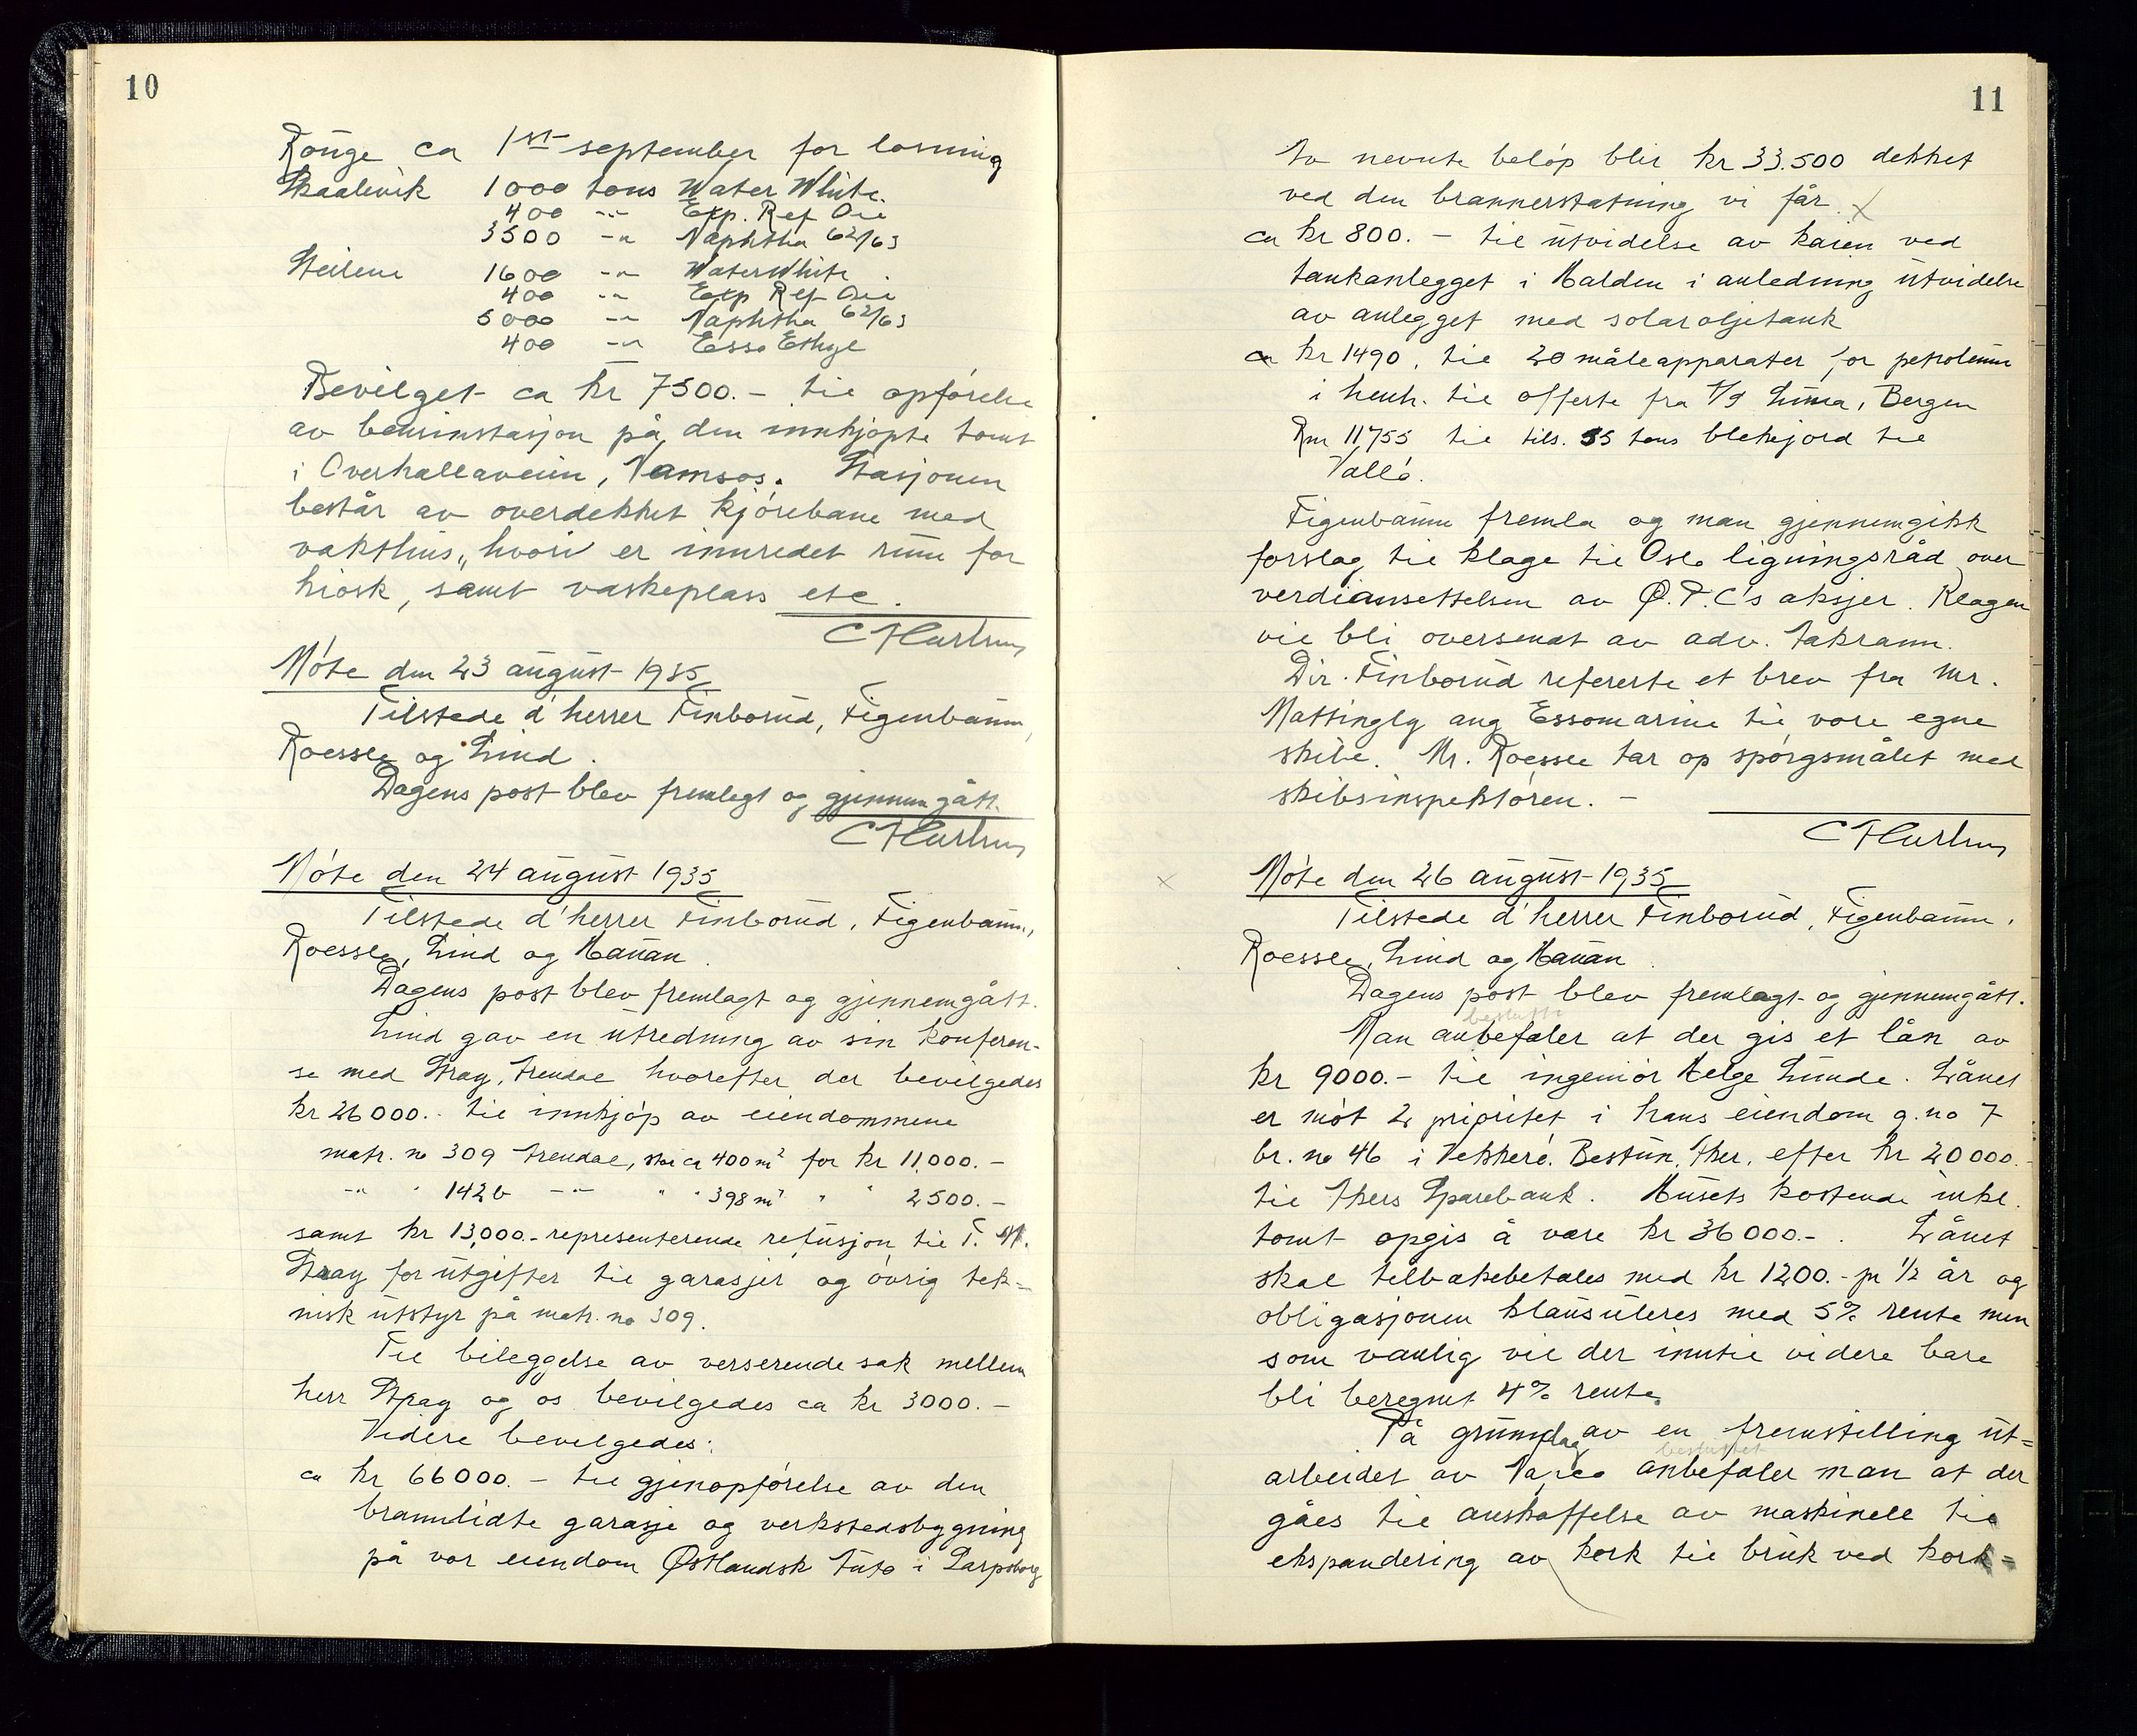 10
Rouge ca 1st september for losning
Skaalevik 1000 tons Water White.
400 -"- Exp. Ref Oil
3500 -"- Naphtha 62/63
Steilene 1600 -"- Water White.
400 -"- Exp Ref Oil
5000 -"- Naphtha 62/63
400 -"- Esso Ethyl
Bevilget ca kr 7500.- til opførelse
av bensinstasjon på den innkjøpte tomt
i Overhallaveien, Namsos. Stasjonen
består av overdekket kjørebane med
vakthus, hvori er innredet rum for
kiosk, samt vaskeplass etc.
Møte den 23 august 1935
Tilstede d'herrer Finborud, Figenbaum,
Roessle og Lind.
Dagens post blev fremlegt og gjennemgått.
Møte den 24 august 1935
Tilstede d'herrer Finborud, Figenbaum,
Roessle, Lind og Hauan.
Dagens post blev fremlagt og gjennemgått.
Lind gav en utredning av sin konferen-
se med Stray, Arendal hvorefter der bevilgedes
kr 26000.- til innkjøp av eiendommene
matr. no 309 Arendal, stor ca 400 m² for kr 11,000.-
-"- " 142b -"- " " 398 m² " " 2500.-
samt kr 13,000.- representerende refusjon til T. M.
Stray for utgifter til garasjer og øvrig tek-
nisk utstyr på matr. no 309.
Til bileggelse av verserende sak mellem
herr Stray og os bevilgedes ca kr 3000.-
Videre bevilgedes:
ca kr 66000.- til gjenopførelse av den
brannlidte garasje og verkstedsbygning
på vor eiendom Østlandsk Auto i Sarpsborg
11
Av nevnte beløp blir kr 33.500 dekket
ved den brannerstatning vi får. x
ca kr 800.- til utvidelse av kaien ved
tankanlegget i Halden i anledning utvidelse
av anlegget med solaroljetank
ca kr 1490. til 20 måleapparater for petroleum
i henh. til offerte fra A/S Luma, Bergen
Rm 11,755 til tils. 55 tons blekejord til
Vallø.
Figenbaum fremla og man gjennemgikk
forslag til klage til Oslo ligningsråd over
verdiansettelsen av Ø.P.C's aksjer. Klagen
vil bli oversendt av adv. Aakrann.
Dir. Finborud refererte et brev fra Mr.
Mattingly ang Essomarine til vore egne
skibe. Mr. Roessle tar op spørgsmålet med
skibsinspektøren. -
x Møte den 26 august 1935
Tilstede d'herrer Finborud, Figenbaum,
Roessle, Lind og Hauan.
Dagens post blev fremlagt og gjennemgått.
beslutte
Man anbefaler at der gis et lån av
kr 9000.- til ingeniør Helge Lunde. Lånet
er mot 2 prioritet i hans eiendom g.no 7
br. no 46 i Vekkerø. Bestum, Aker, efter kr 20000.-
til Akers Sparebank. Husets kostende inkl.
tomt opgis å være kr 36000.-. Lånet
skal tilbakebetales med kr 1200.- pr 1/2 år og
obligasjonen klausuleres med 5% rente men
som vanlig vil der inntil videre bare
bli beregnet 4% rente.
På grunnlag av en fremstilling ut=
besluttet
arbeidet av anbefaler man at der
gåes til anskaffelse av maskinell til
ekspandering av kork til bruk ved kork=